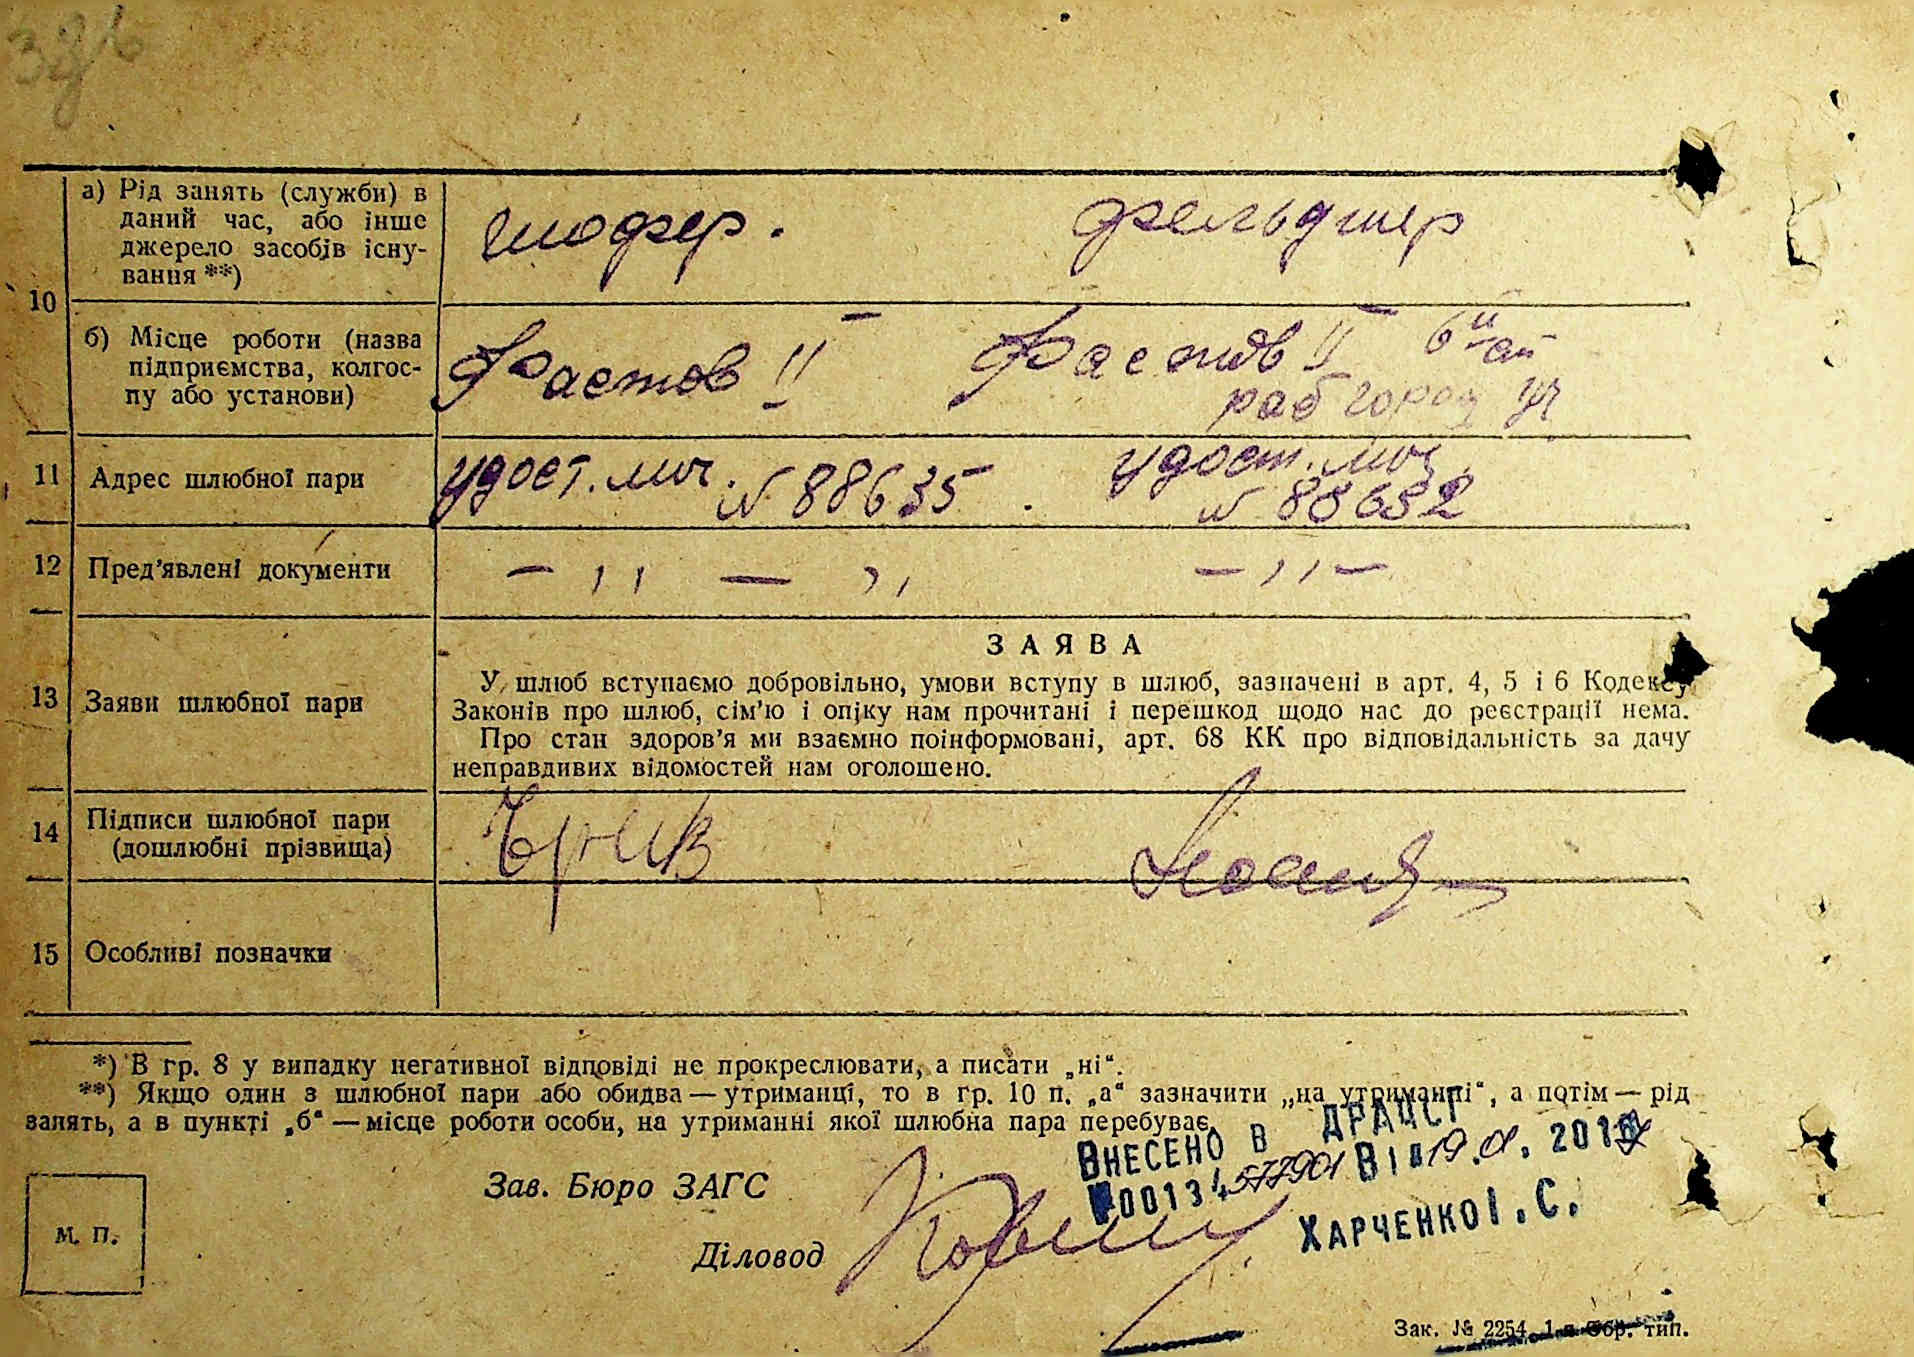 а) Рід занять (служби) в
даний час, або інше
джерело засобів існу-
вання **)
шофер.
фельдшер
10
б) Місце роботи (назва
підприємства, колгос-
пу або установи)
Фастов II
Фастов II 6й
раб город
11
Адрес шлюбної пари
удост. лич. N 88635.
удост. лич.
N 88632
12
Пред'явлені документи
— ,, — ,,
— ,, —
13
Заяви шлюбної пари
ЗАЯВА
У шлюб вступаємо добровільно, умови вступу в шлюб, зазначені в арт. 4, 5 і 6 Кодексу
Законів про шлюб, сім'ю і опіку нам прочитані і перешкод щодо нас до реєстрації нема.
Про стан здоров'я ми взаємно поінформовані, арт. 68 КК про відповідальність за дачу
неправдивих відомостей нам оголошено.
14
Підписи шлюбної пари
(дошлюбні прізвища)
15
Особливі позначки
*) В гр. 8 у випадку негативної відповіді не прокреслювати, а писати „ні“.
**) Якщо один з шлюбної пари або обидва — утриманці, то в гр. 10 п. „а“ зазначити „на утриманні“, а потім — рід
занять, а в пункті „б“ — місце роботи особи, на утриманні якої шлюбна пара перебуває.
Внесено в ДРАЦСГ
№00134577901 Від 19.01.201
Харченко І. С.
Зав. Бюро ЗАГС
Діловод
м. п.
Зак. № 2254 1-а Обр. тип.